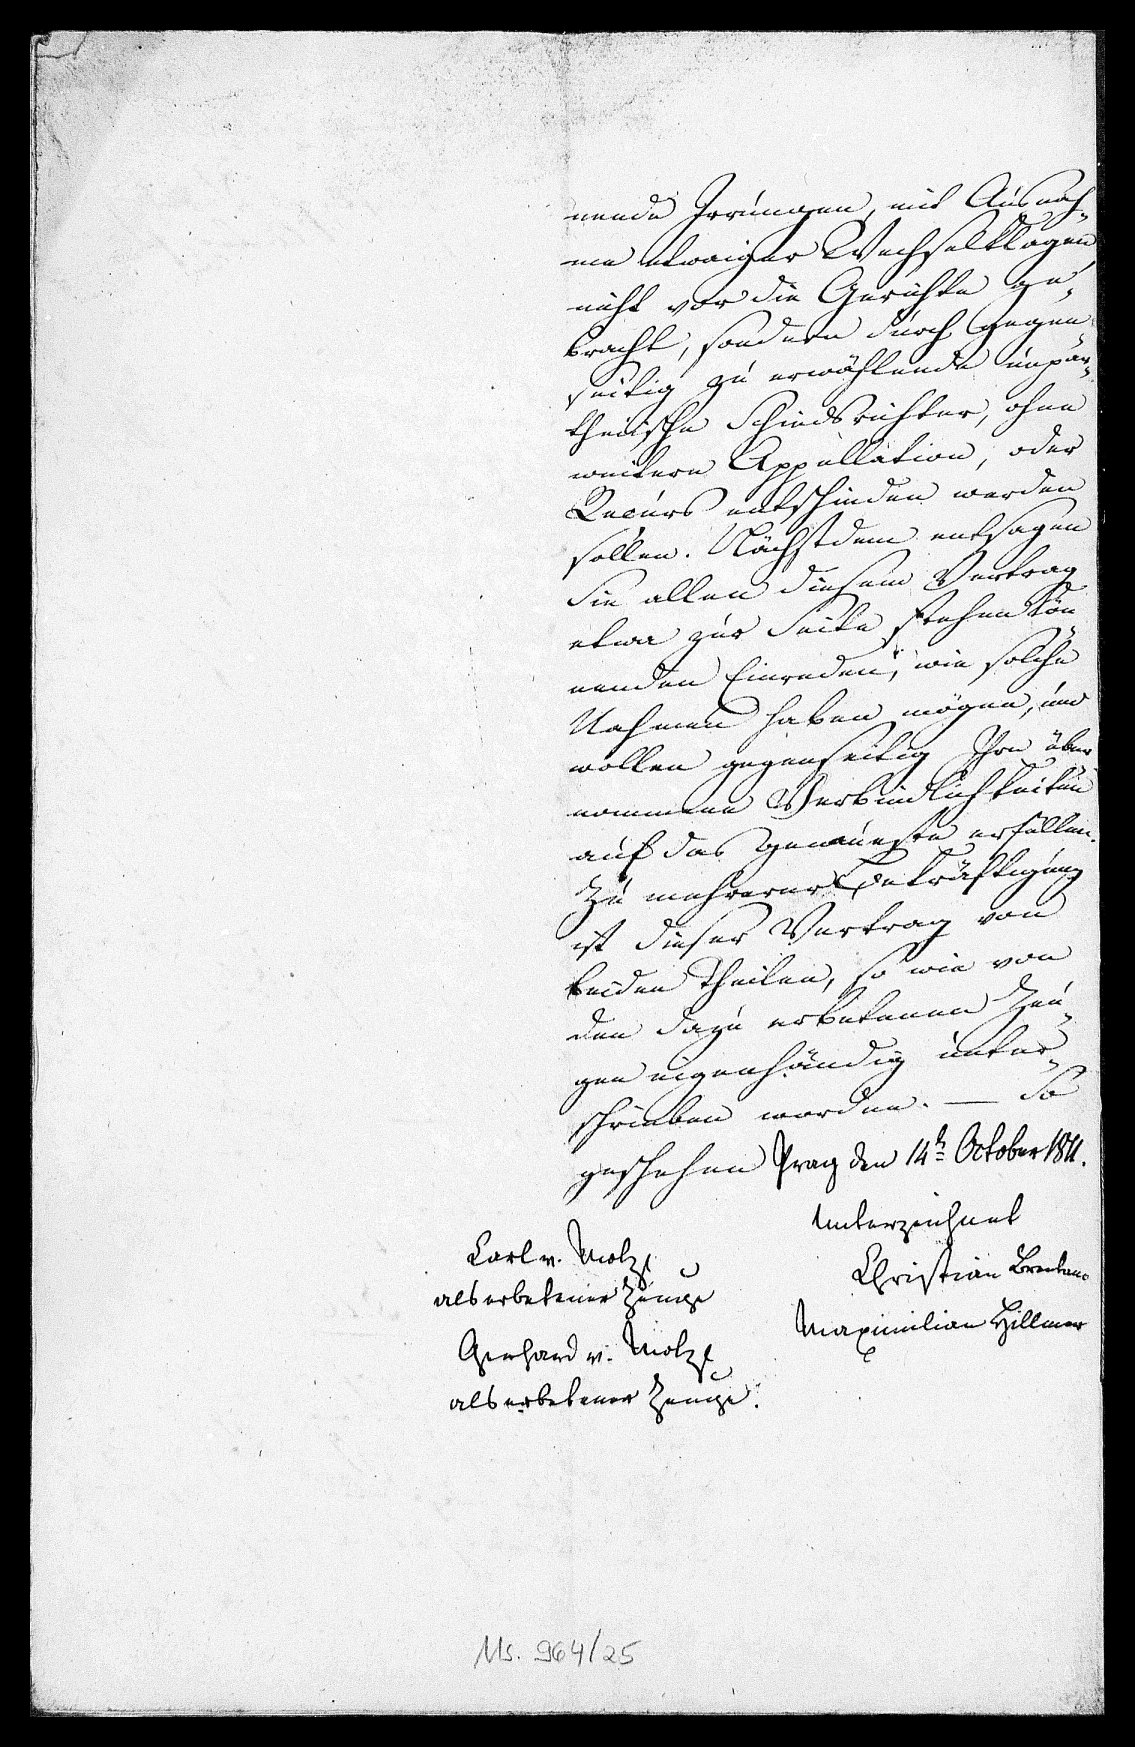 nende Irrungen, mit Ausnah-
me etwaiger Wechselklagen
nicht vor die Gerichte ge-
bracht, sondern durch gegen-
seitig zu erwählende unpar-
theiische Schiedsrichter, ohne
weitere Appellation, oder
Recurs entschieden werden
sollen. Nächstdem entsagen
Sie allen diesem Vertrag
etwa zur Seite stehen kön-
nenden Einreden, wie solche
Nahmen haben mögen, und
wollen gegenseitig Ihre über-
nommene Verbindlichkeiten
auf das genaueste erfüllen.
Zu mehrerer Bekräftigung
ist dieser Vertrag von
beiden Theilen, so wie von
den dazu erbetenen Zeu-
gen eigenhändig unter-
schrieben worden. — So
geschehen Prag den 14t October 1811.
Unterzeichnet
Christian Brentano
Maximilian Hillmer
Carl v.
als erbetener Zeuge
Gerhard v.
als erbetener Zeuge.
Ms. 964/25